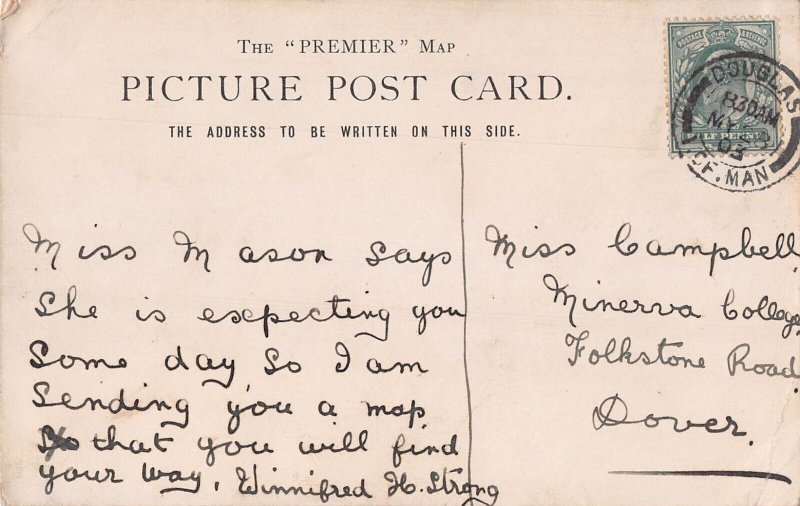 The "PREMIER" Map
PICTURE POST CARD.
THE ADDRESS TO BE WRITTEN ON THIS SIDE.
POSTAGE & REVENUE
HALF PENNY
DOUGLAS
830AM
03
OF. MAN
Miss Mason says
She is expecting you
Some day So I am
Sending you a map
that you will find
your way, Winnifred H. Strong
Miss Campbell
Minerva College,
Folkstone Road
Dover.